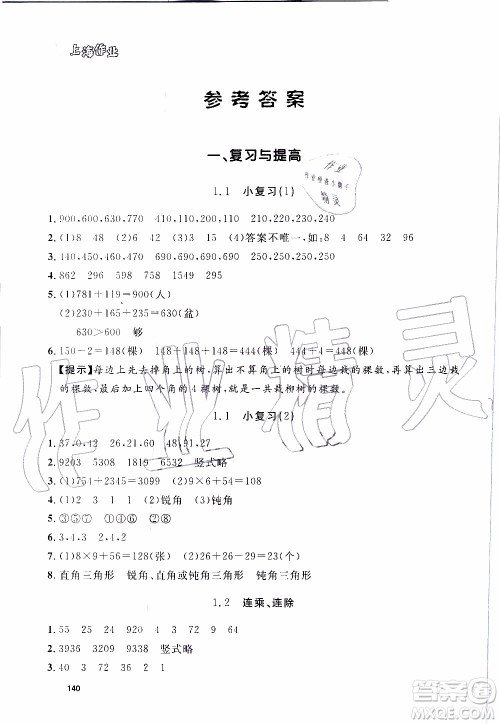 上海作业
参考答案
一、复习与提高
1.1 小复习(1)
1. 900,600,630,770 410,270,700,360 210,230,210,240
2. (1)8 48 (2)6 42 (3)4 16 (4)答案不唯一,如: 8 4 64 32 96
3. 140,450,460,470 690,670,650,640 250,300,350,400
4. 862 296 583 698
5. (1)781+119=900(人)
(2)230+165+235=630(盆)
630>600 够
6. 150-2=148(棵) 148+148+148=444(棵) 444+4=448(棵)
【提示】每边上先去掉角上的树,算出不算角上的树时每边栽的棵数,再算出三边栽
的棵数,最后加上四个角的4棵树,就是一共栽柳树的棵数。
1.1 小复习(2)
1. 37,0,42 26,21,60 48,91,27
2. 9203 5308 1839 6282 竖式略
3. (1)(751+2345)=3096 (2)(9×6)÷2=27
4. (1)2 3 1 (2)锐角 (3)钝角
5. ③⑤⑦ ①④⑥ ②⑧
6. 3,3,4 2,4,2
7. (1)8×9+56=128(张) (2)26+26÷2+23=62(个)
8. 直角三角形 锐角、直角或钝角三角形 钝角三角形
1.2 连乘、连除
1. 55 25 24 200 4 3 9 64
2. 3936 3320 9922 4823 竖式略
3. 40 54 70 90 120 2 4 3 4 7
140
作业
精灵
作业精灵